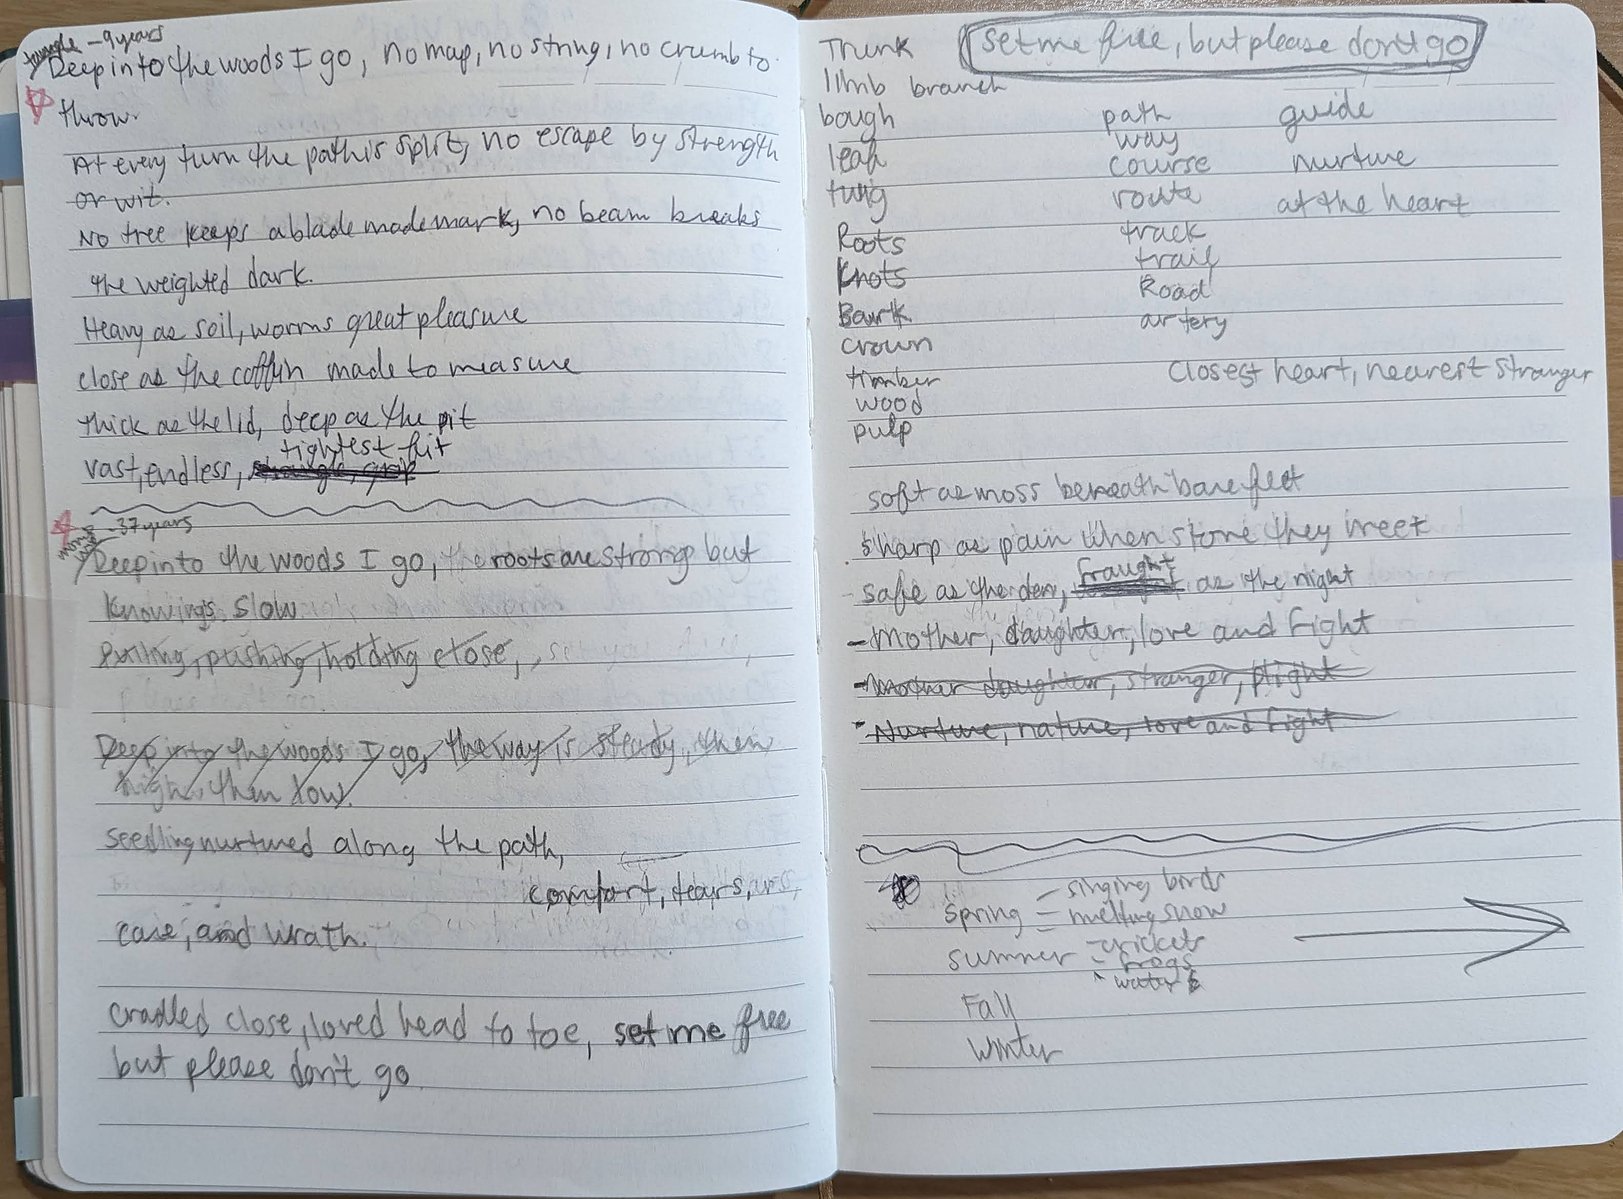 jungle - 9 years
Deep into the woods I go, no map, no string, no crumb to
throw.
At every turn the path is split, no escape by strength
or wit.
No tree keeps a blade made mark, no beam breaks
the weighted dark.
Heavy as soil, worms great pleasure
close as the coffin made to measure
thick as the lid, deep as the pit
tightest fit
vast, endless,
- 37 years
Deep into the woods I go, the roots are strong but
knowings slow.
Pulling, pushing, holding close,
Deep into the woods I go, the way is steady, then
high, then low.
seedling nurtured along the path,
comfort, tears,
care, and wrath.
cradled close, loved head to toe, set me free
but please don't go.
Trunk
limb branch
bough
leaf
twig
Roots
Knots
Bark
crown
timber
wood
pulp
set me free, but please don't go
path
way
course
route
track
trail
Road
artery
guide
nurture
at the heart
closest heart, nearest stranger
soft as moss beneath bare feet
sharp as pain when stone they meet
fraught
safe as the den, as the night
- Mother, daughter, love and fight
- Mother daughter, stranger, plight
- Nurture, nature, love and fight
- singing birds
spring - melting snow
summer - crickets
- frogs
- water
Fall
winter